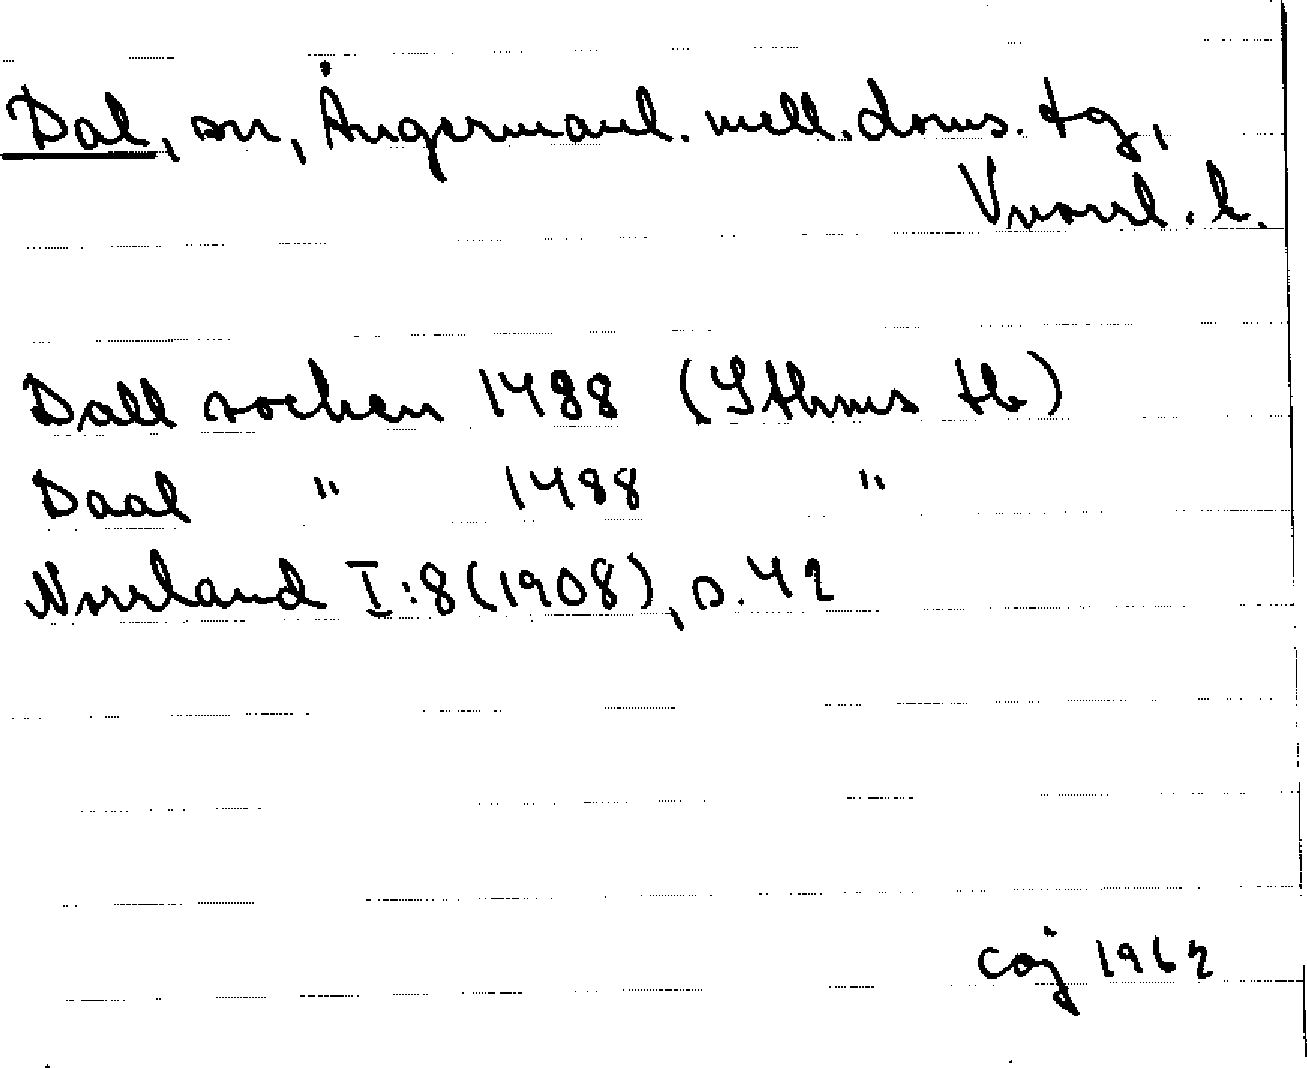 Dal, sn, Ångermanl. mell. doms. tg,
Vnorrl. l.
Dall sochen 1488 (Sthms tb)
Daal " 1488 "
Norrland I:8 (1908), s. 42
coj 1962